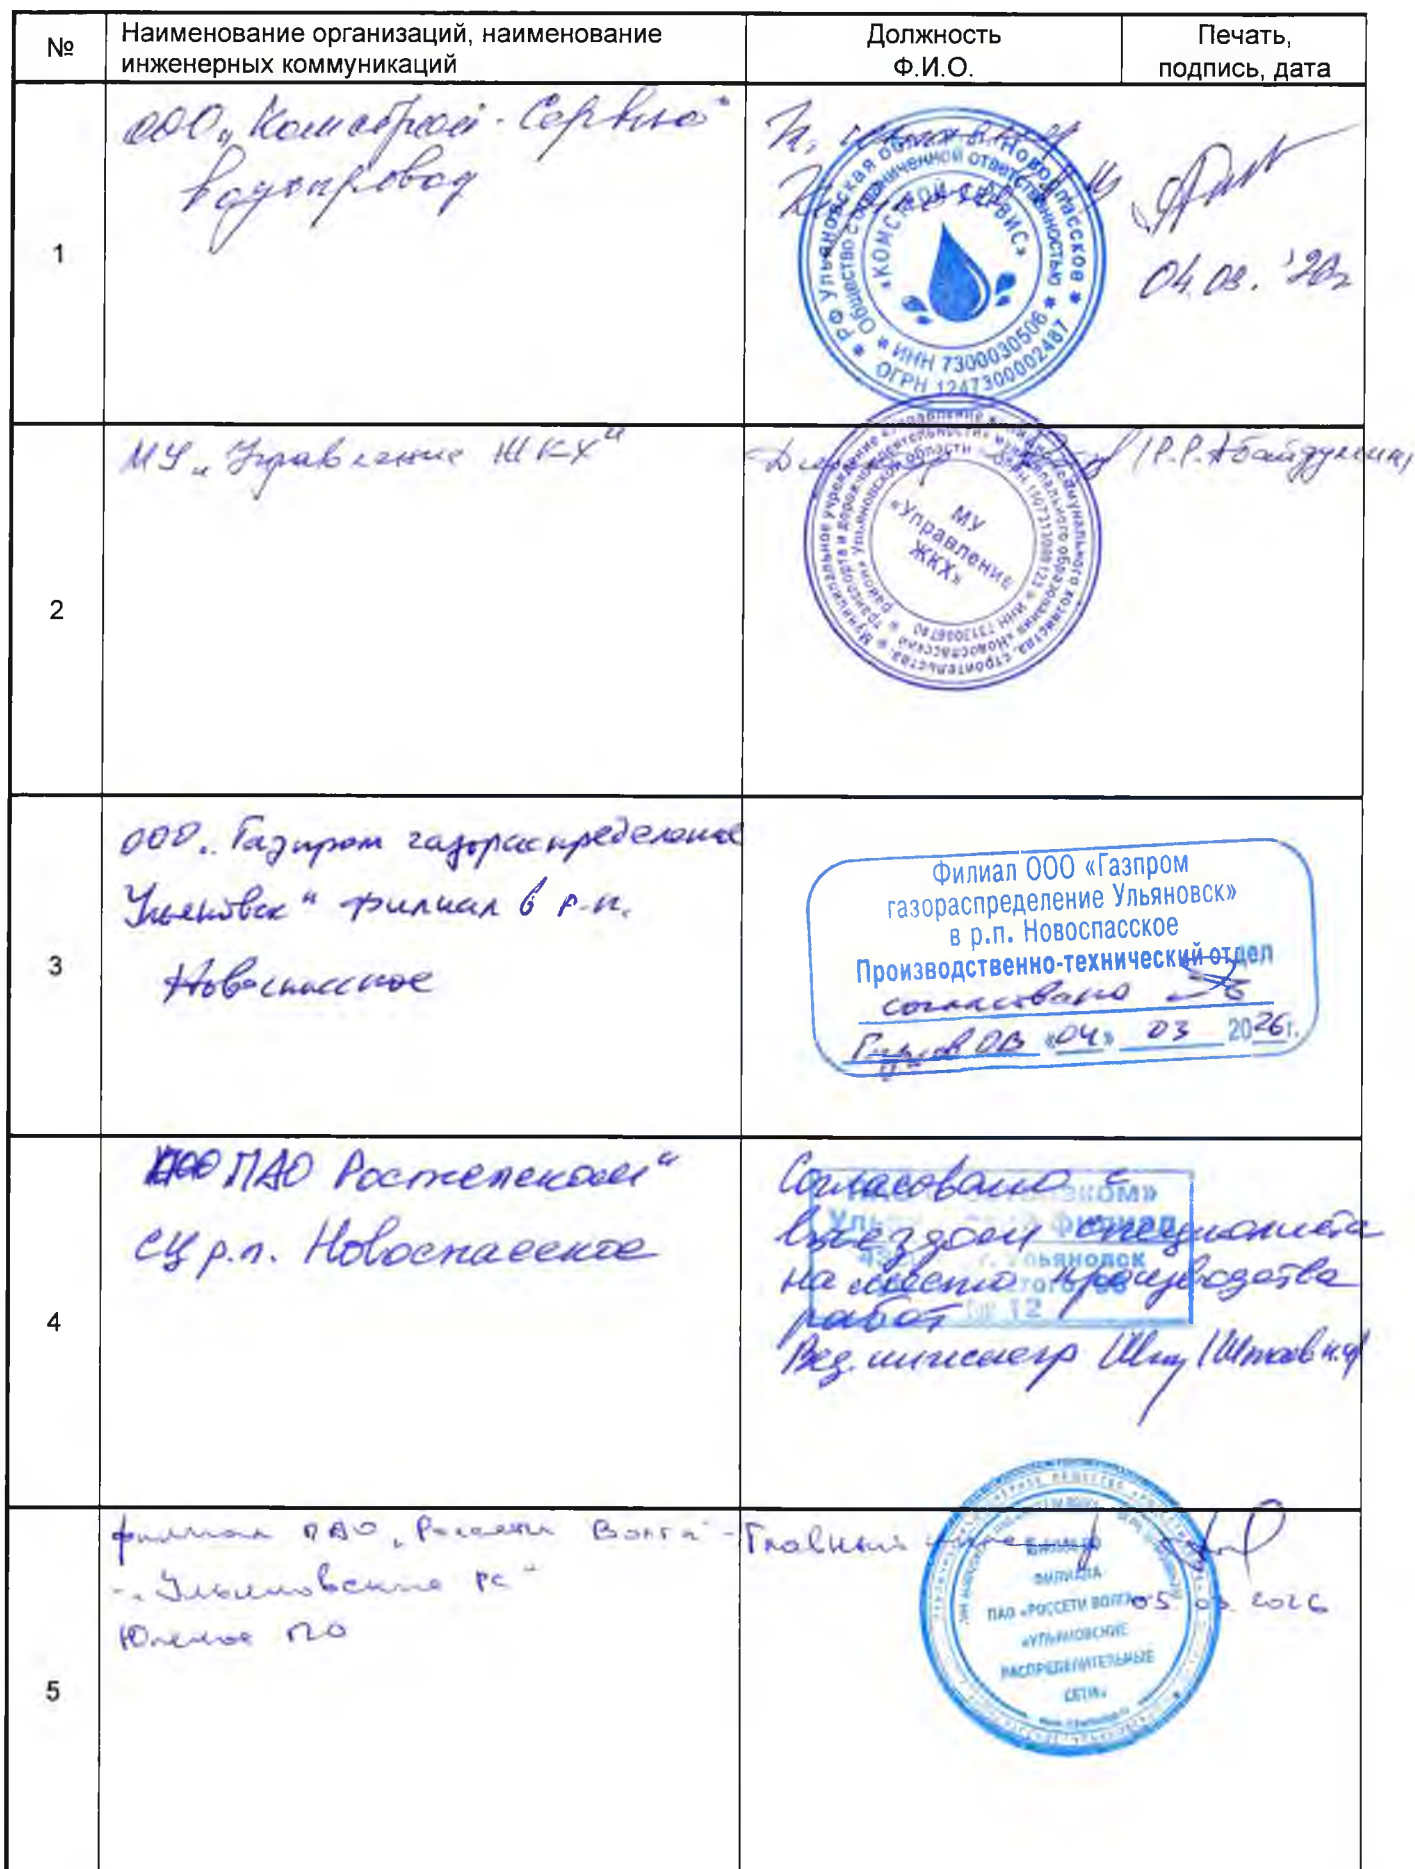 №
Наименование организаций, наименование
инженерных коммуникаций
Должность
Ф.И.О.
Печать,
подпись, дата
1
ООО „Комстрой-Сервис"
водопровод
РФ Ульяновская область р.п. Новоспасское
Общество с ограниченной ответственностью
«КОМСТРОЙ-СЕРВИС»
ИНН 7300030506
ОГРН 1247300002487
04.03.
2
МУ „Управление ЖКХ"
Директор
МУ
«Управление
ЖКХ»
3
ООО „Газпром газораспределение
Ульяновск" филиал в р.п.
Новоспасское
Филиал ООО «Газпром
газораспределение Ульяновск»
в р.п. Новоспасское
Производственно-технический отдел
согласовано
ОВ «04» 03 2026г.
4
ПАО Ростелеком"
СЦ р.п. Новоспасское
Согласовано с
выездом специалиста
на место производства
работ
Вед. инженер
5
филиал ПАО „Россети Волга"-
-„Ульяновские РС"
Южное ПО
Главный инженер
05.03.2026
ФИЛИАЛА
ПАО «РОССЕТИ ВОЛГА»
«УЛЬЯНОВСКИЕ
РАСПРЕДЕЛИТЕЛЬНЫЕ
СЕТИ»